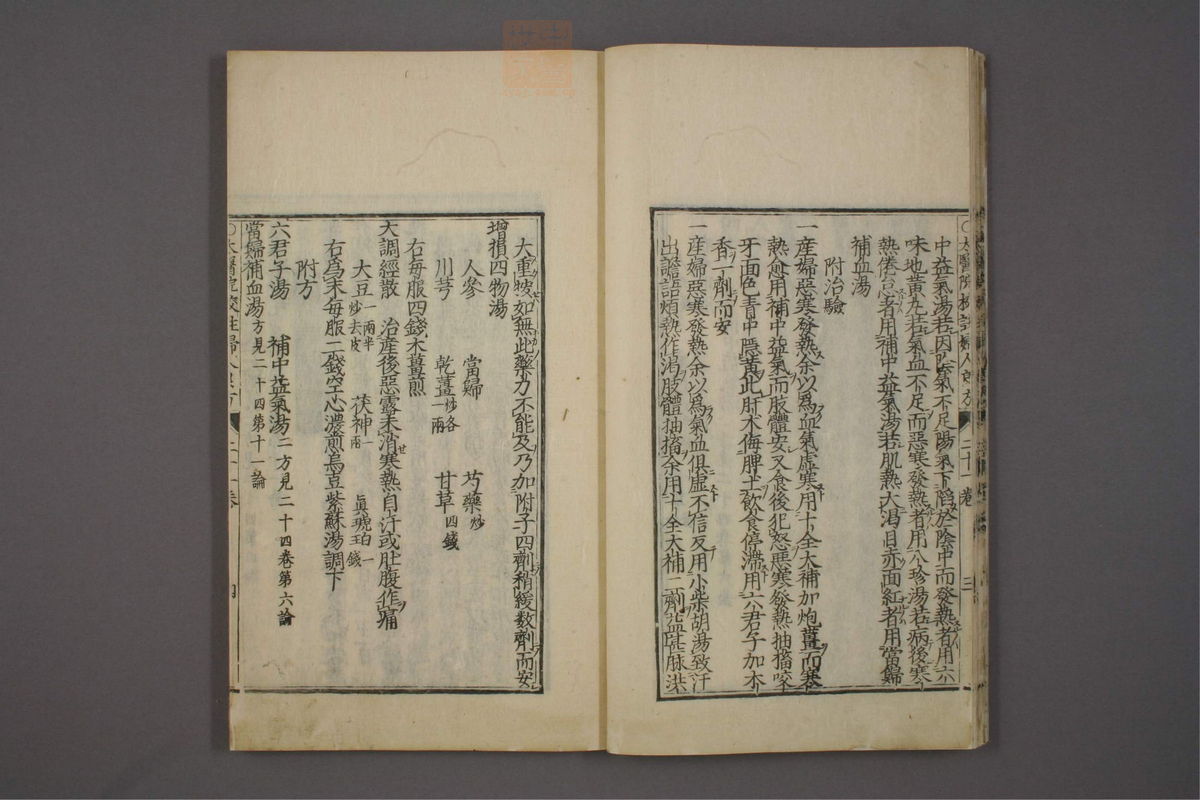 ○太醫院校註婦人良方 二十一卷 三
中益氣湯若因陰氣不足陽氣下陷於陰中而發熱者用六
味地黃丸若氣血不足而惡寒發熱者用八珍湯若病後寒
熱倦怠者用補中益氣湯若肌熱大渴目赤面紅者用當歸
補血湯
附治驗
一產婦惡寒發熱余以為血氣虛寒用十全大補加炮薑而寒
熱愈用補中益氣而肢體安又食後犯怒惡寒發熱抽搐咬
牙面色青中隱黃此肝木侮脾土飲食停滯用六君子加木
香一劑而安
一產婦惡寒發熱余以為氣血俱虛不信反用小柴胡湯致汗
出譫語煩熱作渴肢體抽搐余用十全大補二劑益甚脉洪
大重按如無此藥力不能及乃加附子四劑稍緩數劑而安
增損四物湯
人參 當歸 芍藥炒
川芎 乾薑炒各一兩 甘草四錢
右每服四錢水薑煎
大調經散 治產後惡露未消寒熱自汗或肚腹作痛
大豆一兩半炒去皮 茯神一兩 真琥珀一錢
右為末每服二錢空心濃煎烏豆紫蘇湯調下
附方
六君子湯 補中益氣湯二方見二十四卷第六論
當歸補血湯方見二十四第十一論
○太醫院校註婦人良方 二十一卷 四